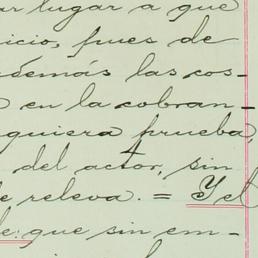 ar lugar a que
icio, pues de
además las cos-
en la cobran-
quiera prueba,
del actor, sin
e releva. = Y el
le: que sin em-